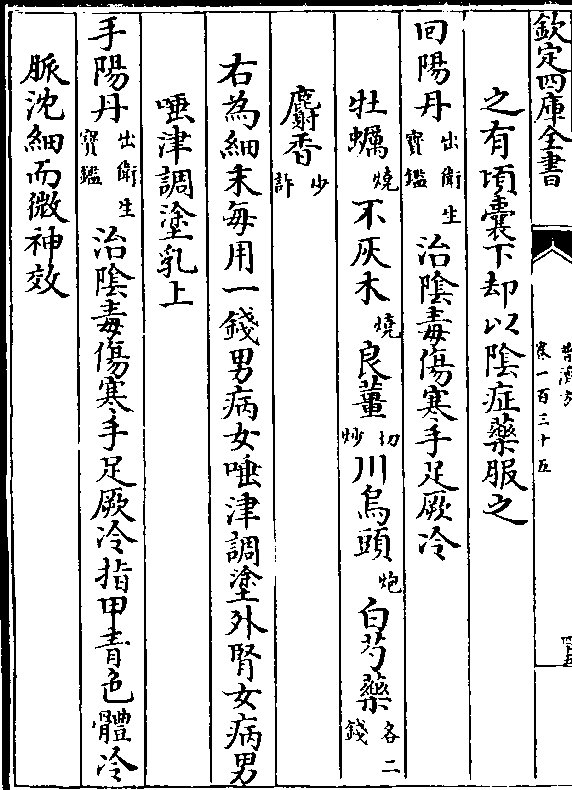 欽定四庫全書
卷一百三十五
之有頃囊下却以陰症藥服之
回陽丹出衛生寶鑑治陰毒傷寒手足厥冷
牡蠣燒不灰木燒良薑切炒川烏頭炮白芍藥各二錢
麝香少許
右為細末每用一錢男病女唾津調塗外腎女病男
唾津調塗乳上
手陽丹出衛生寶鑑治陰毒傷寒手足厥冷指甲青色體冷
脈沈細而微神效